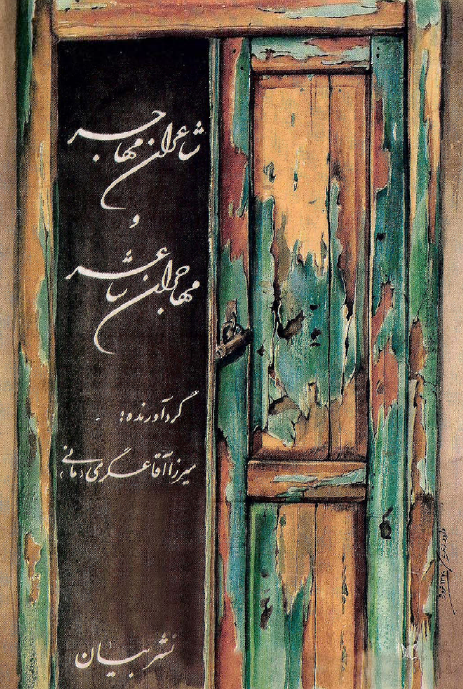 شاعران مهاجر
و
مهاجران شاعر
گردآورنده:
میرزا آقا عسگری (مانی)
نشر بیان